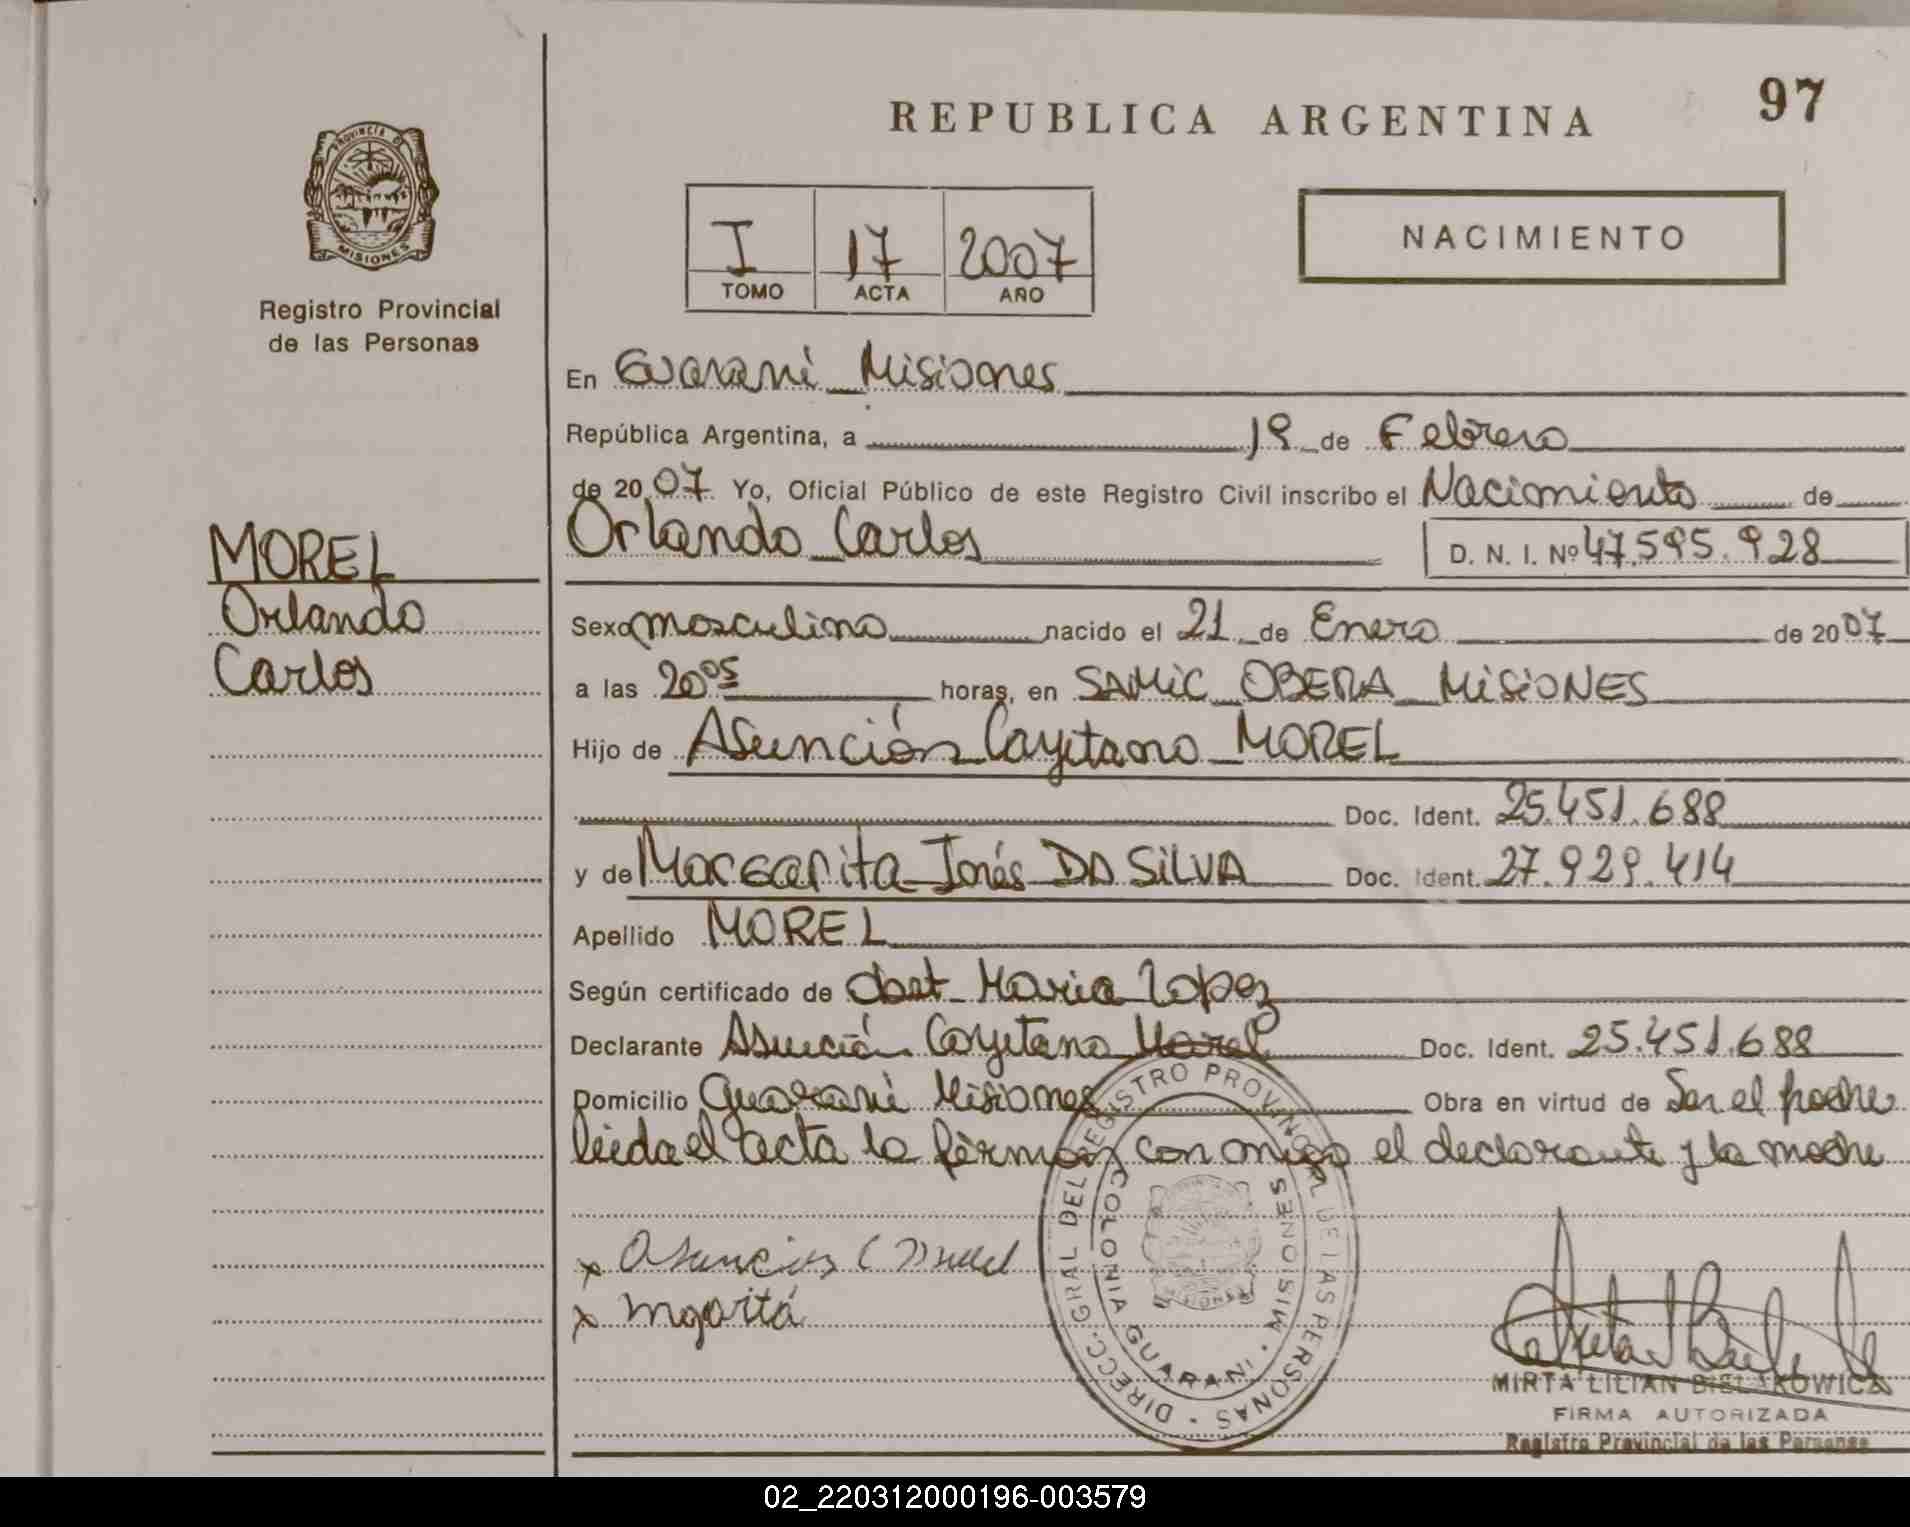 REPUBLICA ARGENTINA
97
PROVINCIA DE
MISIONES
Registro Provincial
de las Personas
I 17 2007
TOMO ACTA AÑO
NACIMIENTO
En Guarani Misiones
República Argentina, a 19 de Febrero
de 2007 Yo, Oficial Público de este Registro Civil inscribo el Nacimiento de
Orlando Carlos D. N. I. Nº 47.595.928
MOREL
Orlando
Carlos
Sexo masculino nacido el 21 de Enero de 2007
a las 20 05 horas, en SAMIC OBERA MISIONES
Hijo de Asunción Cayetano MOREL
Doc. Ident. 25.451.688
y de Margarita Inés DA SILVA Doc. Ident. 27.929.414
Apellido MOREL
Según certificado de Obst Maria Lopez
Declarante Asunción Cayetano Morel Doc. Ident. 25.451.688
Domicilio Guarani Misiones Obra en virtud de Ser el padre
leida el acta la firman conmigo el declarante y la madre
x Asuncion C Morel
x
DIRECC. GRAL DEL REGISTRO PROVINCIAL DE LAS PERSONAS
COLONIA GUARANI · MISIONES
MISIONES
MIRTA LILIAN BIELAKOWICZ
FIRMA AUTORIZADA
Registro Provincial de las Personas
02_220312000196-003579